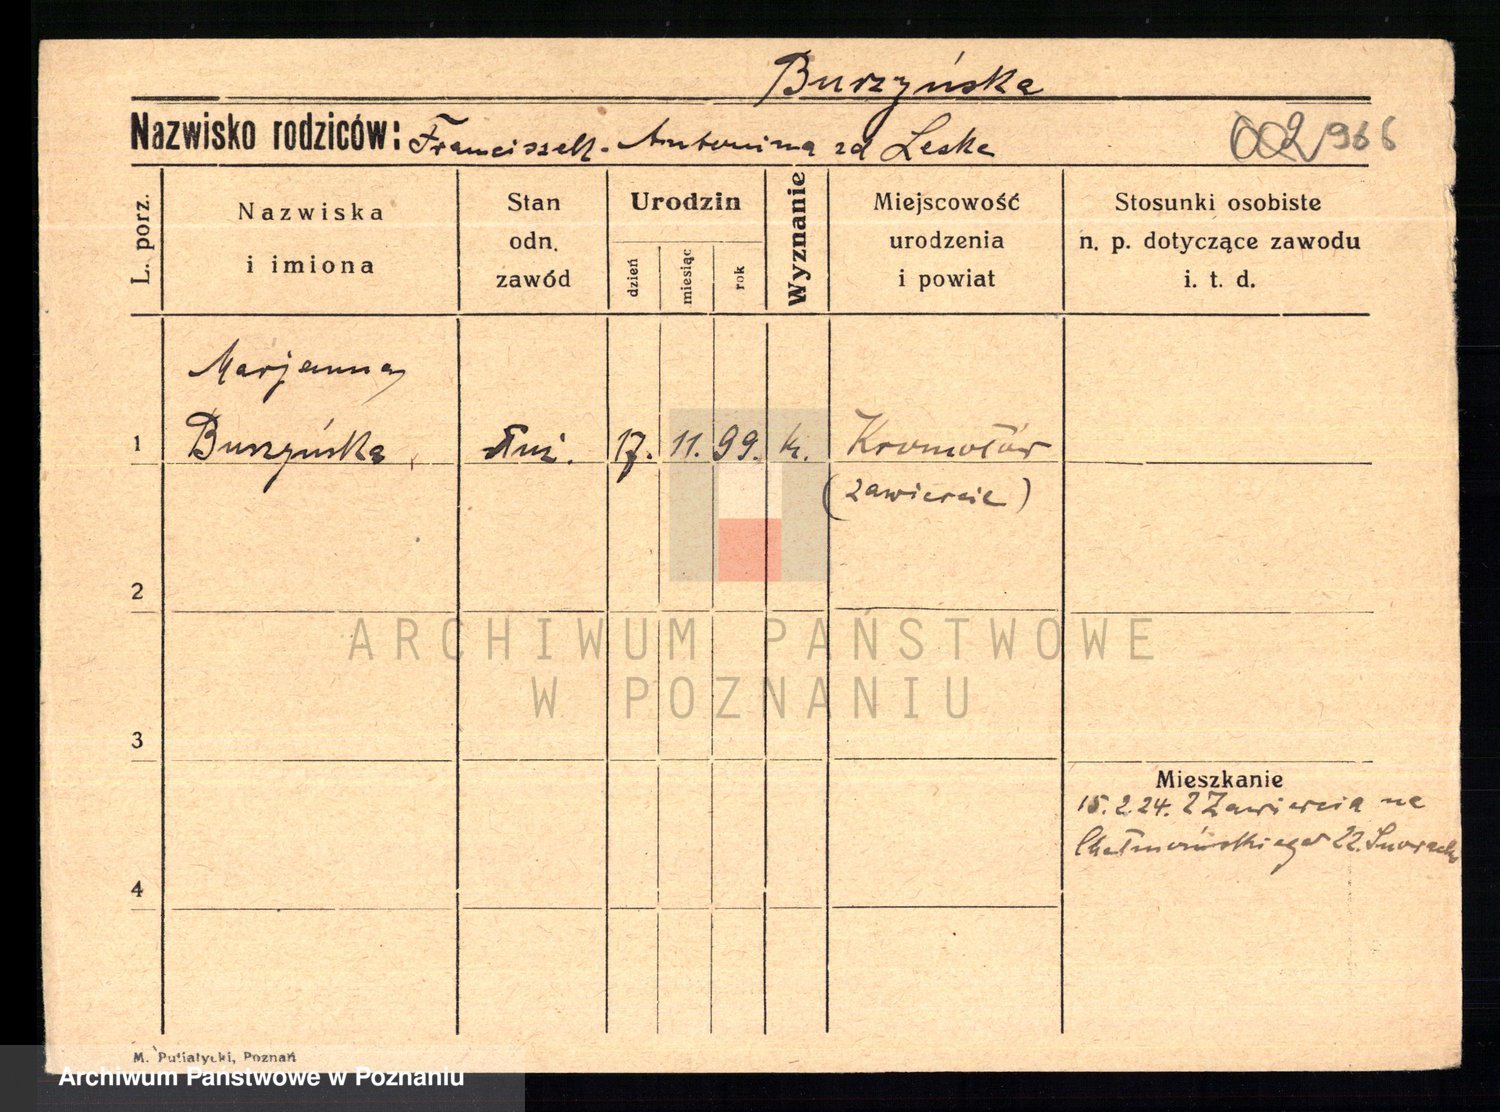 Burzyńska
Nazwisko rodziców: Franciszek - Antonina zd Leske
966
L. porz.
Nazwiska
i imiona
Stan
odn.
zawód
Urodzin
dzień
miesiąc
rok
Wyznanie
Miejscowość
urodzenia
i powiat
Stosunki osobiste
n. p. dotyczące zawodu
i. t. d.
Marjanna
1 Burzyńska 17. 11. 99. k. Kromołów
(Zawiercie)
2
3
4
Mieszkanie
15.2.24. z Zawiercia na
22.
M. Putiatycki, Poznań
ARCHIWUM PAŃSTWOWE
W POZNANIU
Archiwum Państwowe w Poznaniu